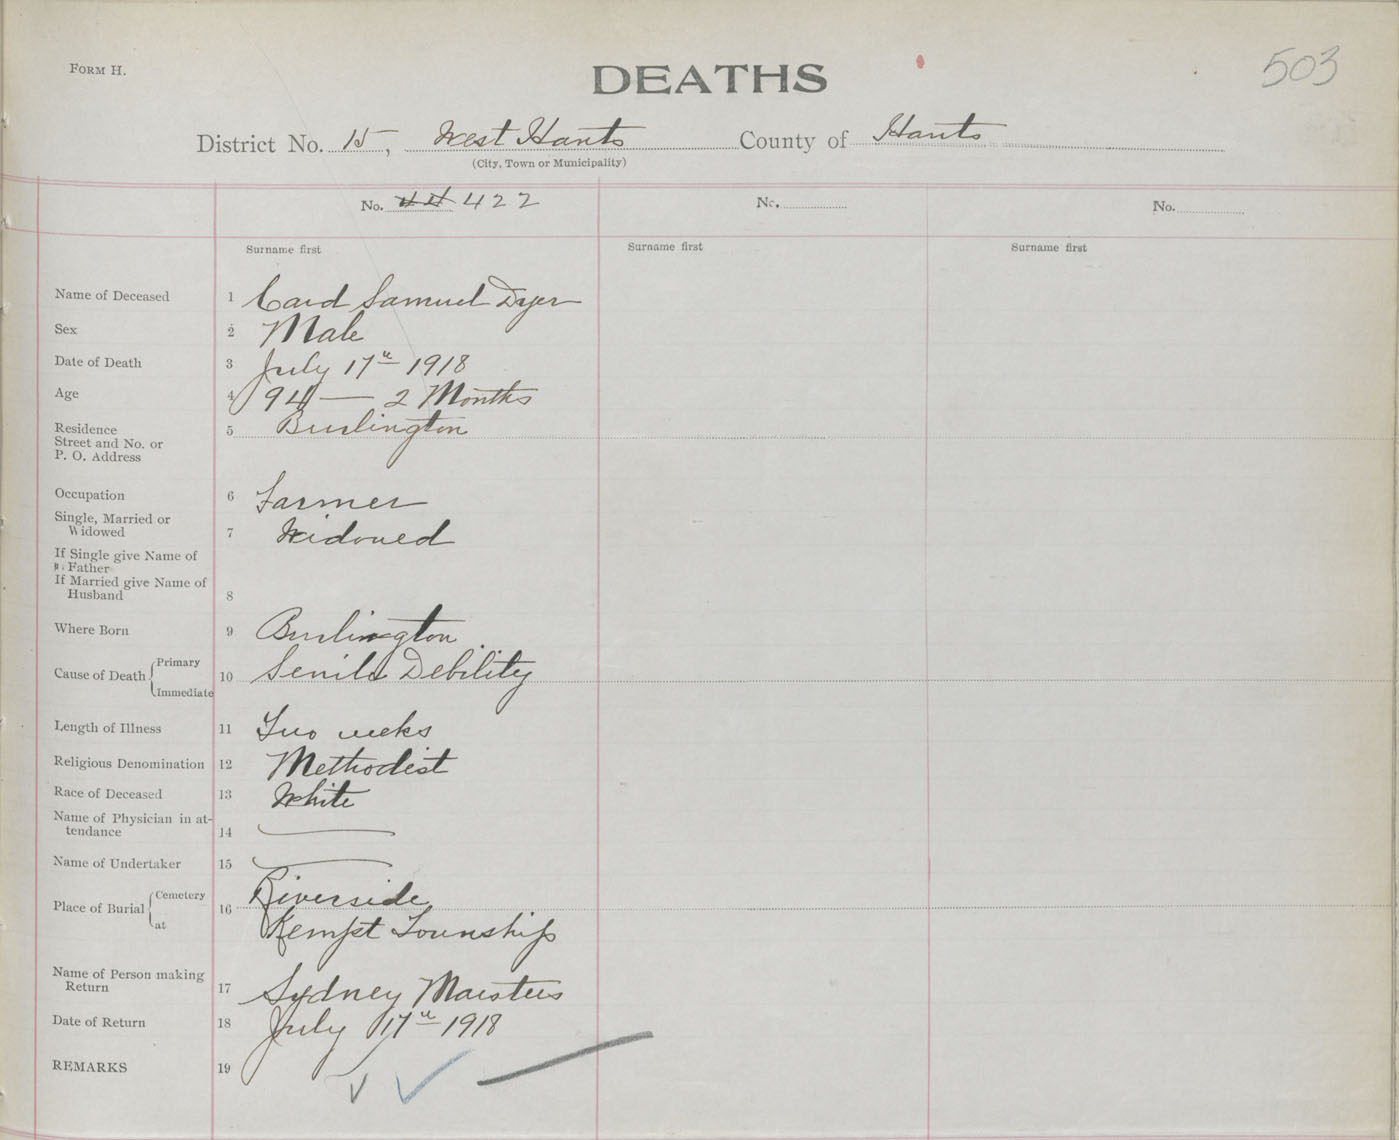 FORM H.
DEATHS
503
District No. 15, West Hants County of Hants
(City, Town or Municipality)
No. 422 No. No.
Surname first Surname first Surname first
Name of Deceased 1 Card Samuel Dyer
Sex 2 Male
Date of Death 3 July 17th 1918
Age 4 94 — 2 Months
Residence 5 Burlington
Street and No. or
P. O. Address
Occupation 6 Farmer
Single, Married or
Widowed 7 Widowed
If Single give Name of
Father
If Married give Name of
Husband 8
Where Born 9 Burlington
Cause of Death Primary
10 Senile Debility
Immediate
Length of Illness 11 Two weeks
Religious Denomination 12 Methodist
Race of Deceased 13 White
Name of Physician in at-
tendance 14 —
Name of Undertaker 15 —
Place of Burial Cemetery Riverside
16
at Kempt Township
Name of Person making
Return 17 Sydney Marsters
Date of Return 18 July 17th 1918
REMARKS 19